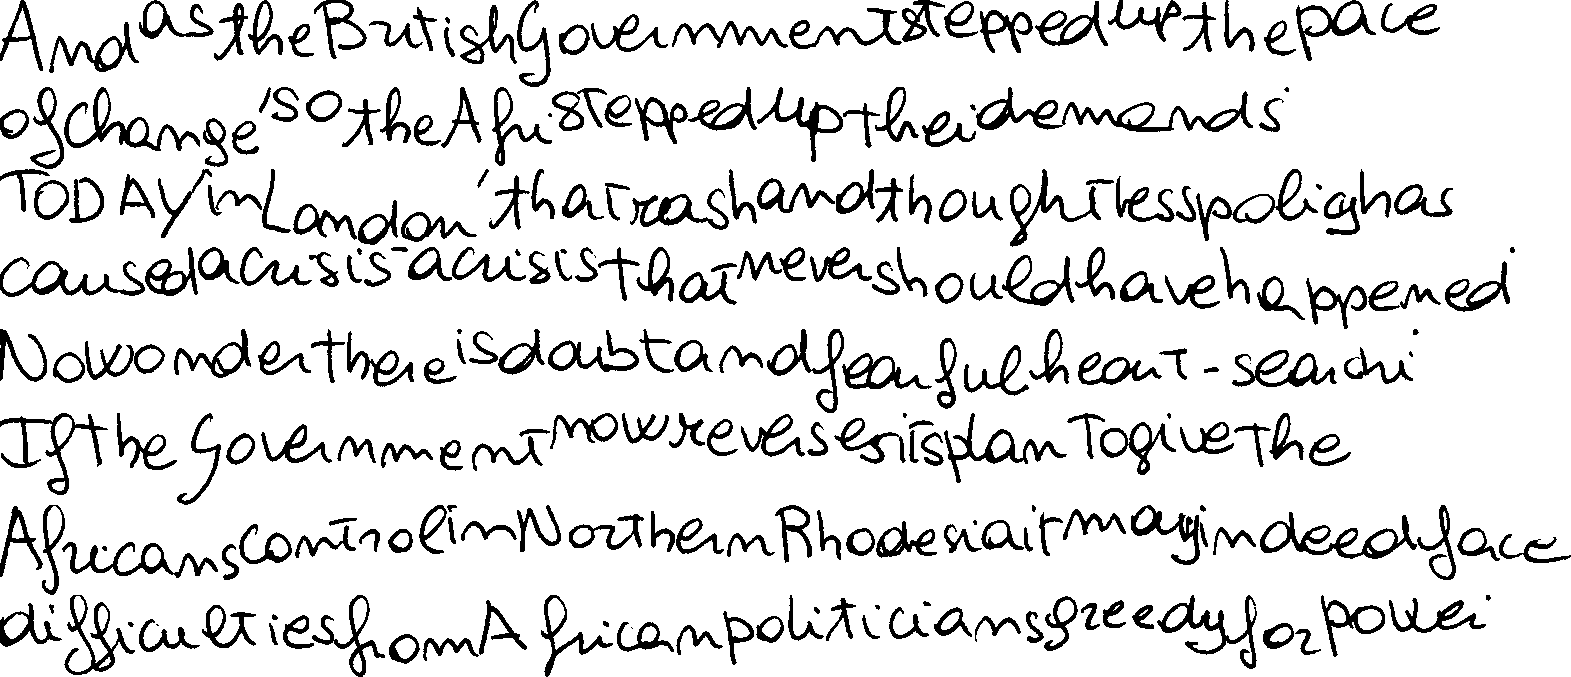 And as the British Government stepped up the pace
of change 'so the Afri stepped up thei demands
TODAY in London 'that rash and thoughtless policy has
caused a crisis - a crisis that never should have happened
No wonder there is doubt and fearful heart-searchi
If the Government now reverses its plan to give the
Africans control in Northern Rhodesia it may indeed face
difficulties from African politicians greedy for power